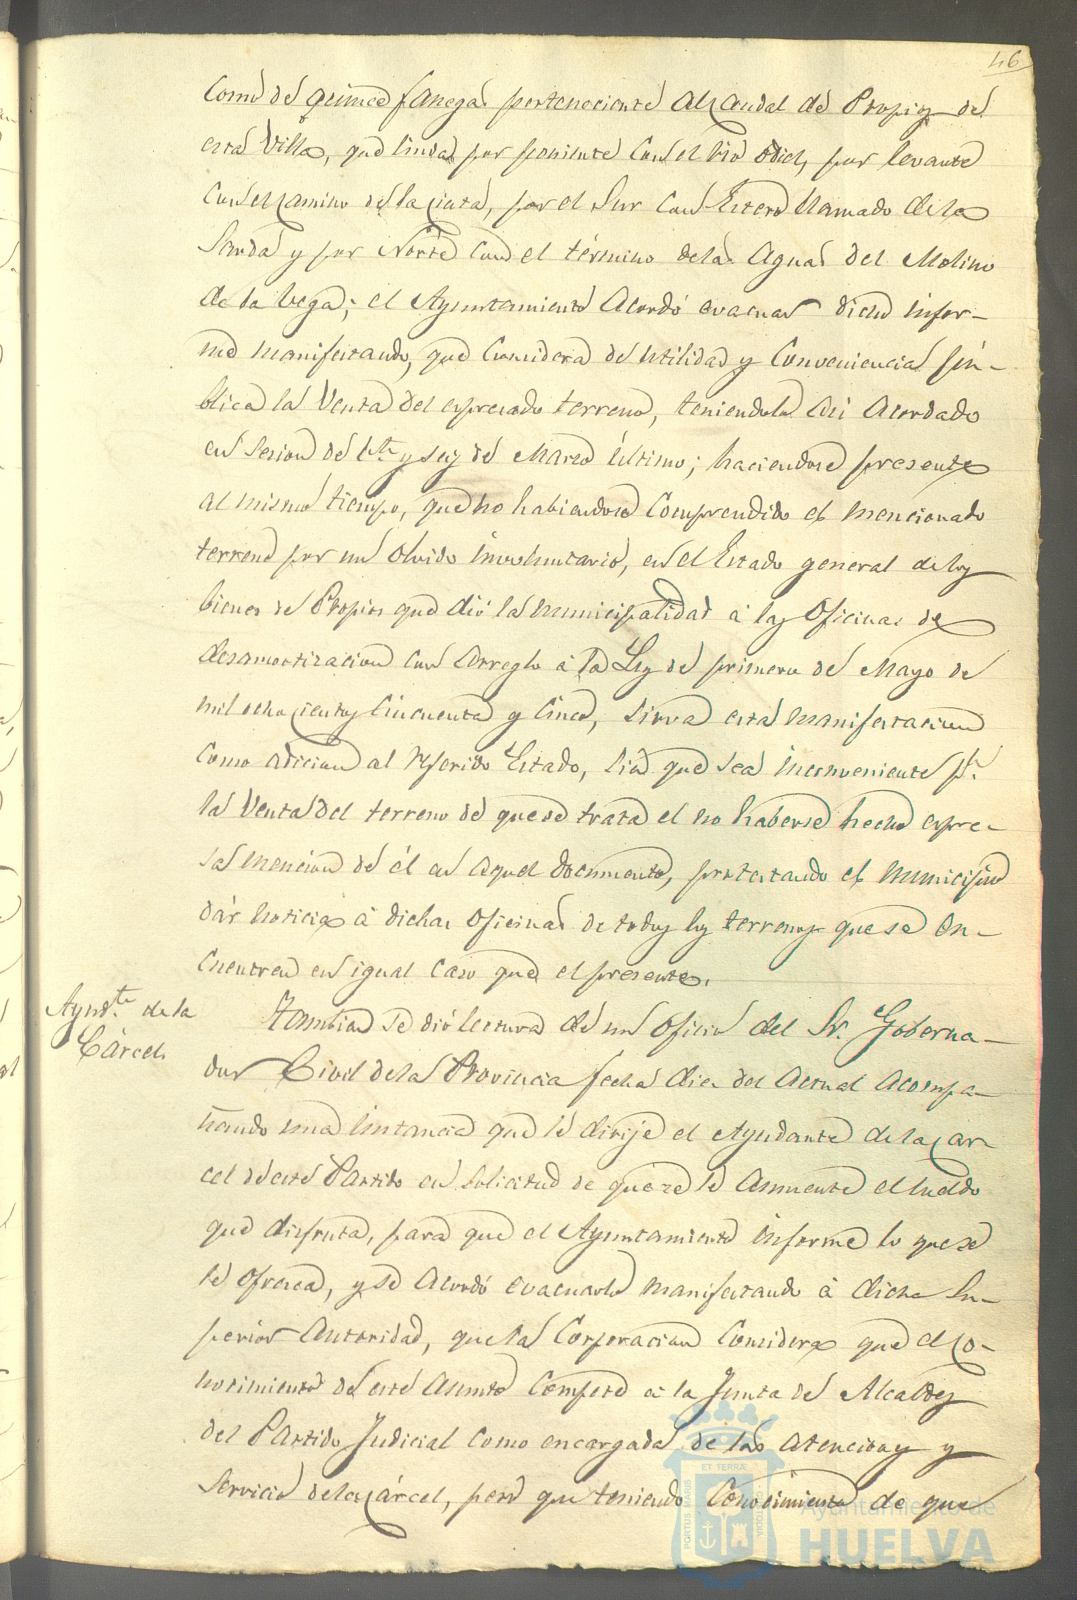 46
como de quince fanegas perteneciente al caudal de Propios de
esta Villa, que linda por poniente con el rio Odiel, por levante
con el camino de la cinta, por el Sur con Estero llamado de la
y por Norte con el término de las Aguas del Molino
de la Vega; el Ayuntamiento Acordó evacuar dicho infor-
me manifestando, que considera de utilidad y conveniencia pú-
blica la Venta del expresado terreno, teniendolo asi Acordado
en sesion de y seis de Marzo último; haciendose presente
al mismo tiempo, que no habiendose comprendido el mencionado
terreno por un olvido involuntario, en el Estado general de los
bienes de Propios que dió la municipalidad á las Oficinas de
desamortizacion con arreglo á la Ley de primero de Mayo de
mil ochocientos cincuenta y cinco, sirva esta manifestacion
como adicion al referido Estado, sin que sea inconveniente pª.
la Venta del terreno de que se trata el no haberse hecho expre-
sa mencion de él en aquel documento, protestando el municipio
dár noticia á dichas oficinas de todos los terrenos que se en-
cuentren en igual caso que el presente.
Aydte. de la
Cárcel.
Tambien se dió lectura de un oficio del Sr. Goberna-
dor Civil de la Provincia fecha diez del actual acompa-
ñando una instancia que le dirije el Ayudante de la car-
cel de este Partido en solicitud de que se le aumente el sueldo
que disfruta, para que el Ayuntamiento informe lo que se
le ofrezca, y se acordó evacuarlo manifestando á dicha Su-
perior Autoridad, que la Corporacion considera que el co-
nocimiento de este asunto compete á la Junta de Alcaldes
del Partido Judicial como encargada de las atenciones y
servicio de la cárcel, pero que teniendo conocimiento de que
PORTUS MARIS ET TERRÆ CUSTODIA
Ayuntamiento de
HUELVA